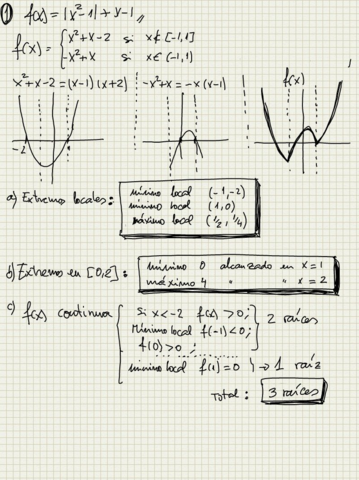 ① f(x) = |x²-1| + x - 1 //
f(x) = { x²+x-2 si x∉[-1,1]
-x²+x si x∈(-1,1)
x²+x-2 = (x-1)(x+2) | -x²+x = -x(x-1) | f(x)
-2
a) Extremos locales: mínimo local (-1,-2)
mínimo local (1,0)
máximo local (1/2, 1/4)
b) Extremos en [0,2]: mínimo 0 alcanzado en x=1
máximo 4 " " x=2
c) f(x) continua { si x<-2 f(x)>0;
Mínimo local f(-1)<0; } 2 raíces
f(0)>0;
mínimo local f(1)=0 } → 1 raíz
Total: 3 raíces